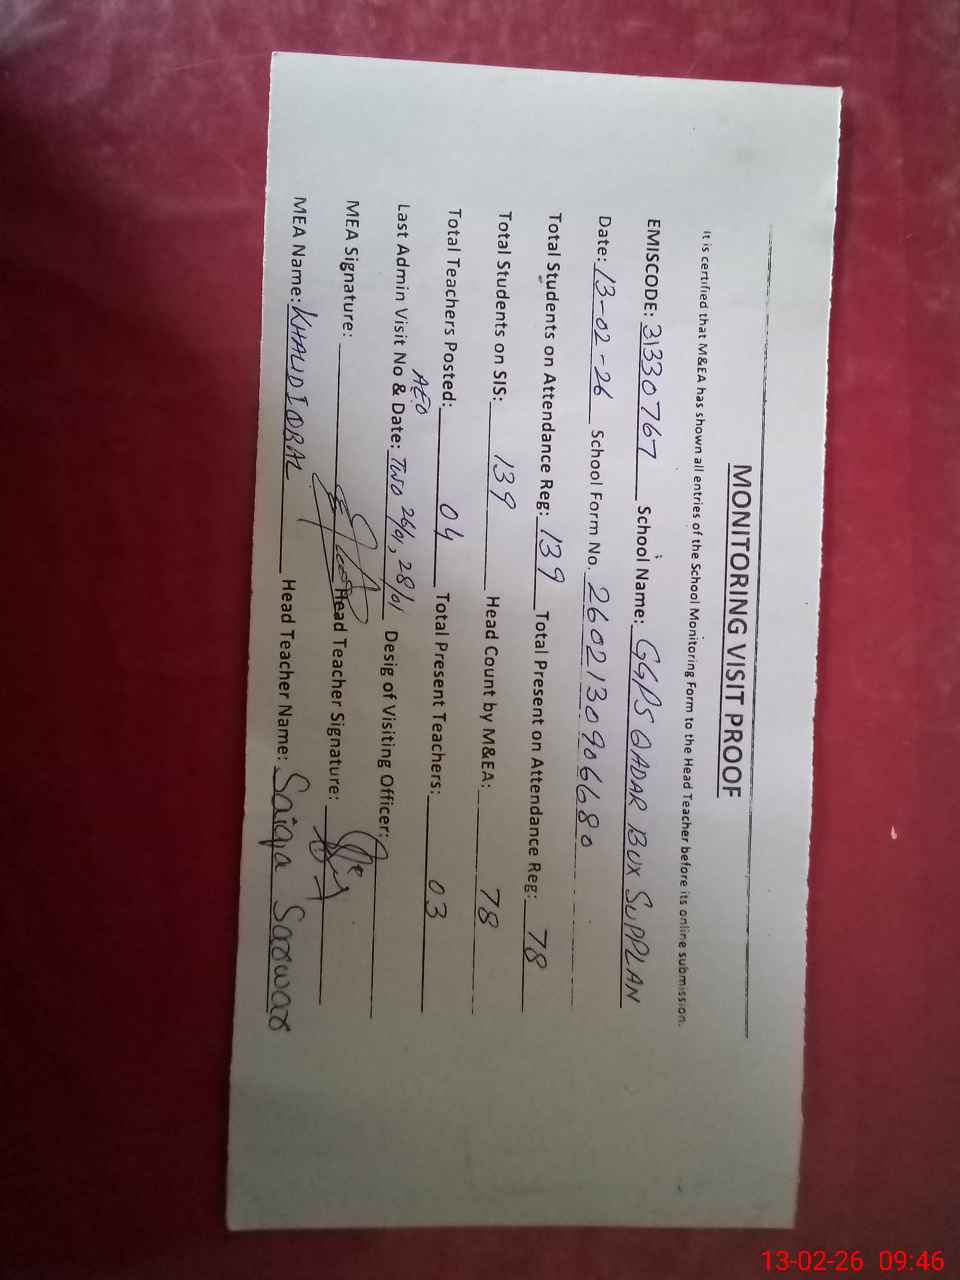 MONITORING VISIT PROOF
It is certified that M&EA has shown all entries of the School Monitoring Form to the Head Teacher before its online submission.
EMISCODE: 31330767 School Name: GGPS QADAR BUX SUPPLAN
Date: 13-02-26 School Form No. 2602130906680
Total Students on Attendance Reg: 139 Total Present on Attendance Reg: 78
Total Students on SIS: 139 Head Count by M&EA: 78
Total Teachers Posted: 04 Total Present Teachers: 03
AEO
Last Admin Visit No & Date: TWO 26/01, 28/01 Desig of Visiting Officer:
MEA Signature: Head Teacher Signature:
MEA Name: KHALID IQBAL Head Teacher Name: Saiqa Sarwar
13-02-26 09:46